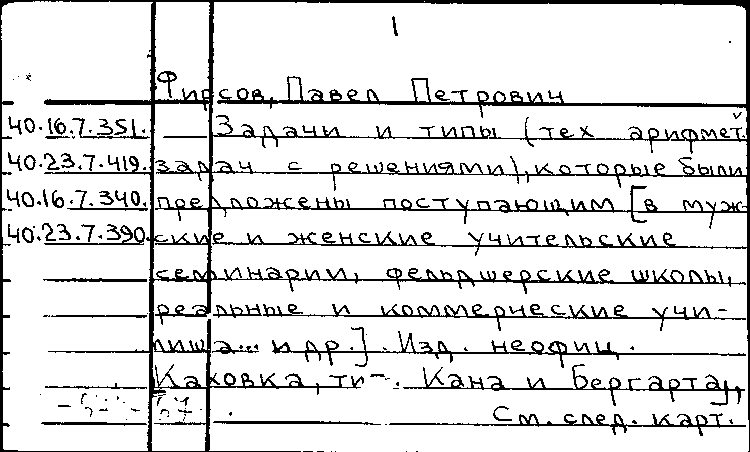 1
Фирсов, Павел Петрович
40.16.7.351. Задачи и типы (тех арифмет.
40.23.7.419. задач с решениями), которые были
40.16.7.340. предложены поступающим [в муж-
40.23.7.390. ские и женские учительские
семинарии, фельдшерские школы,
реальные и коммерческие учи-
лища... и др.]. Изд. неофиц.
Каховка, тип. Кана и Бергарта,
См. след. карт.